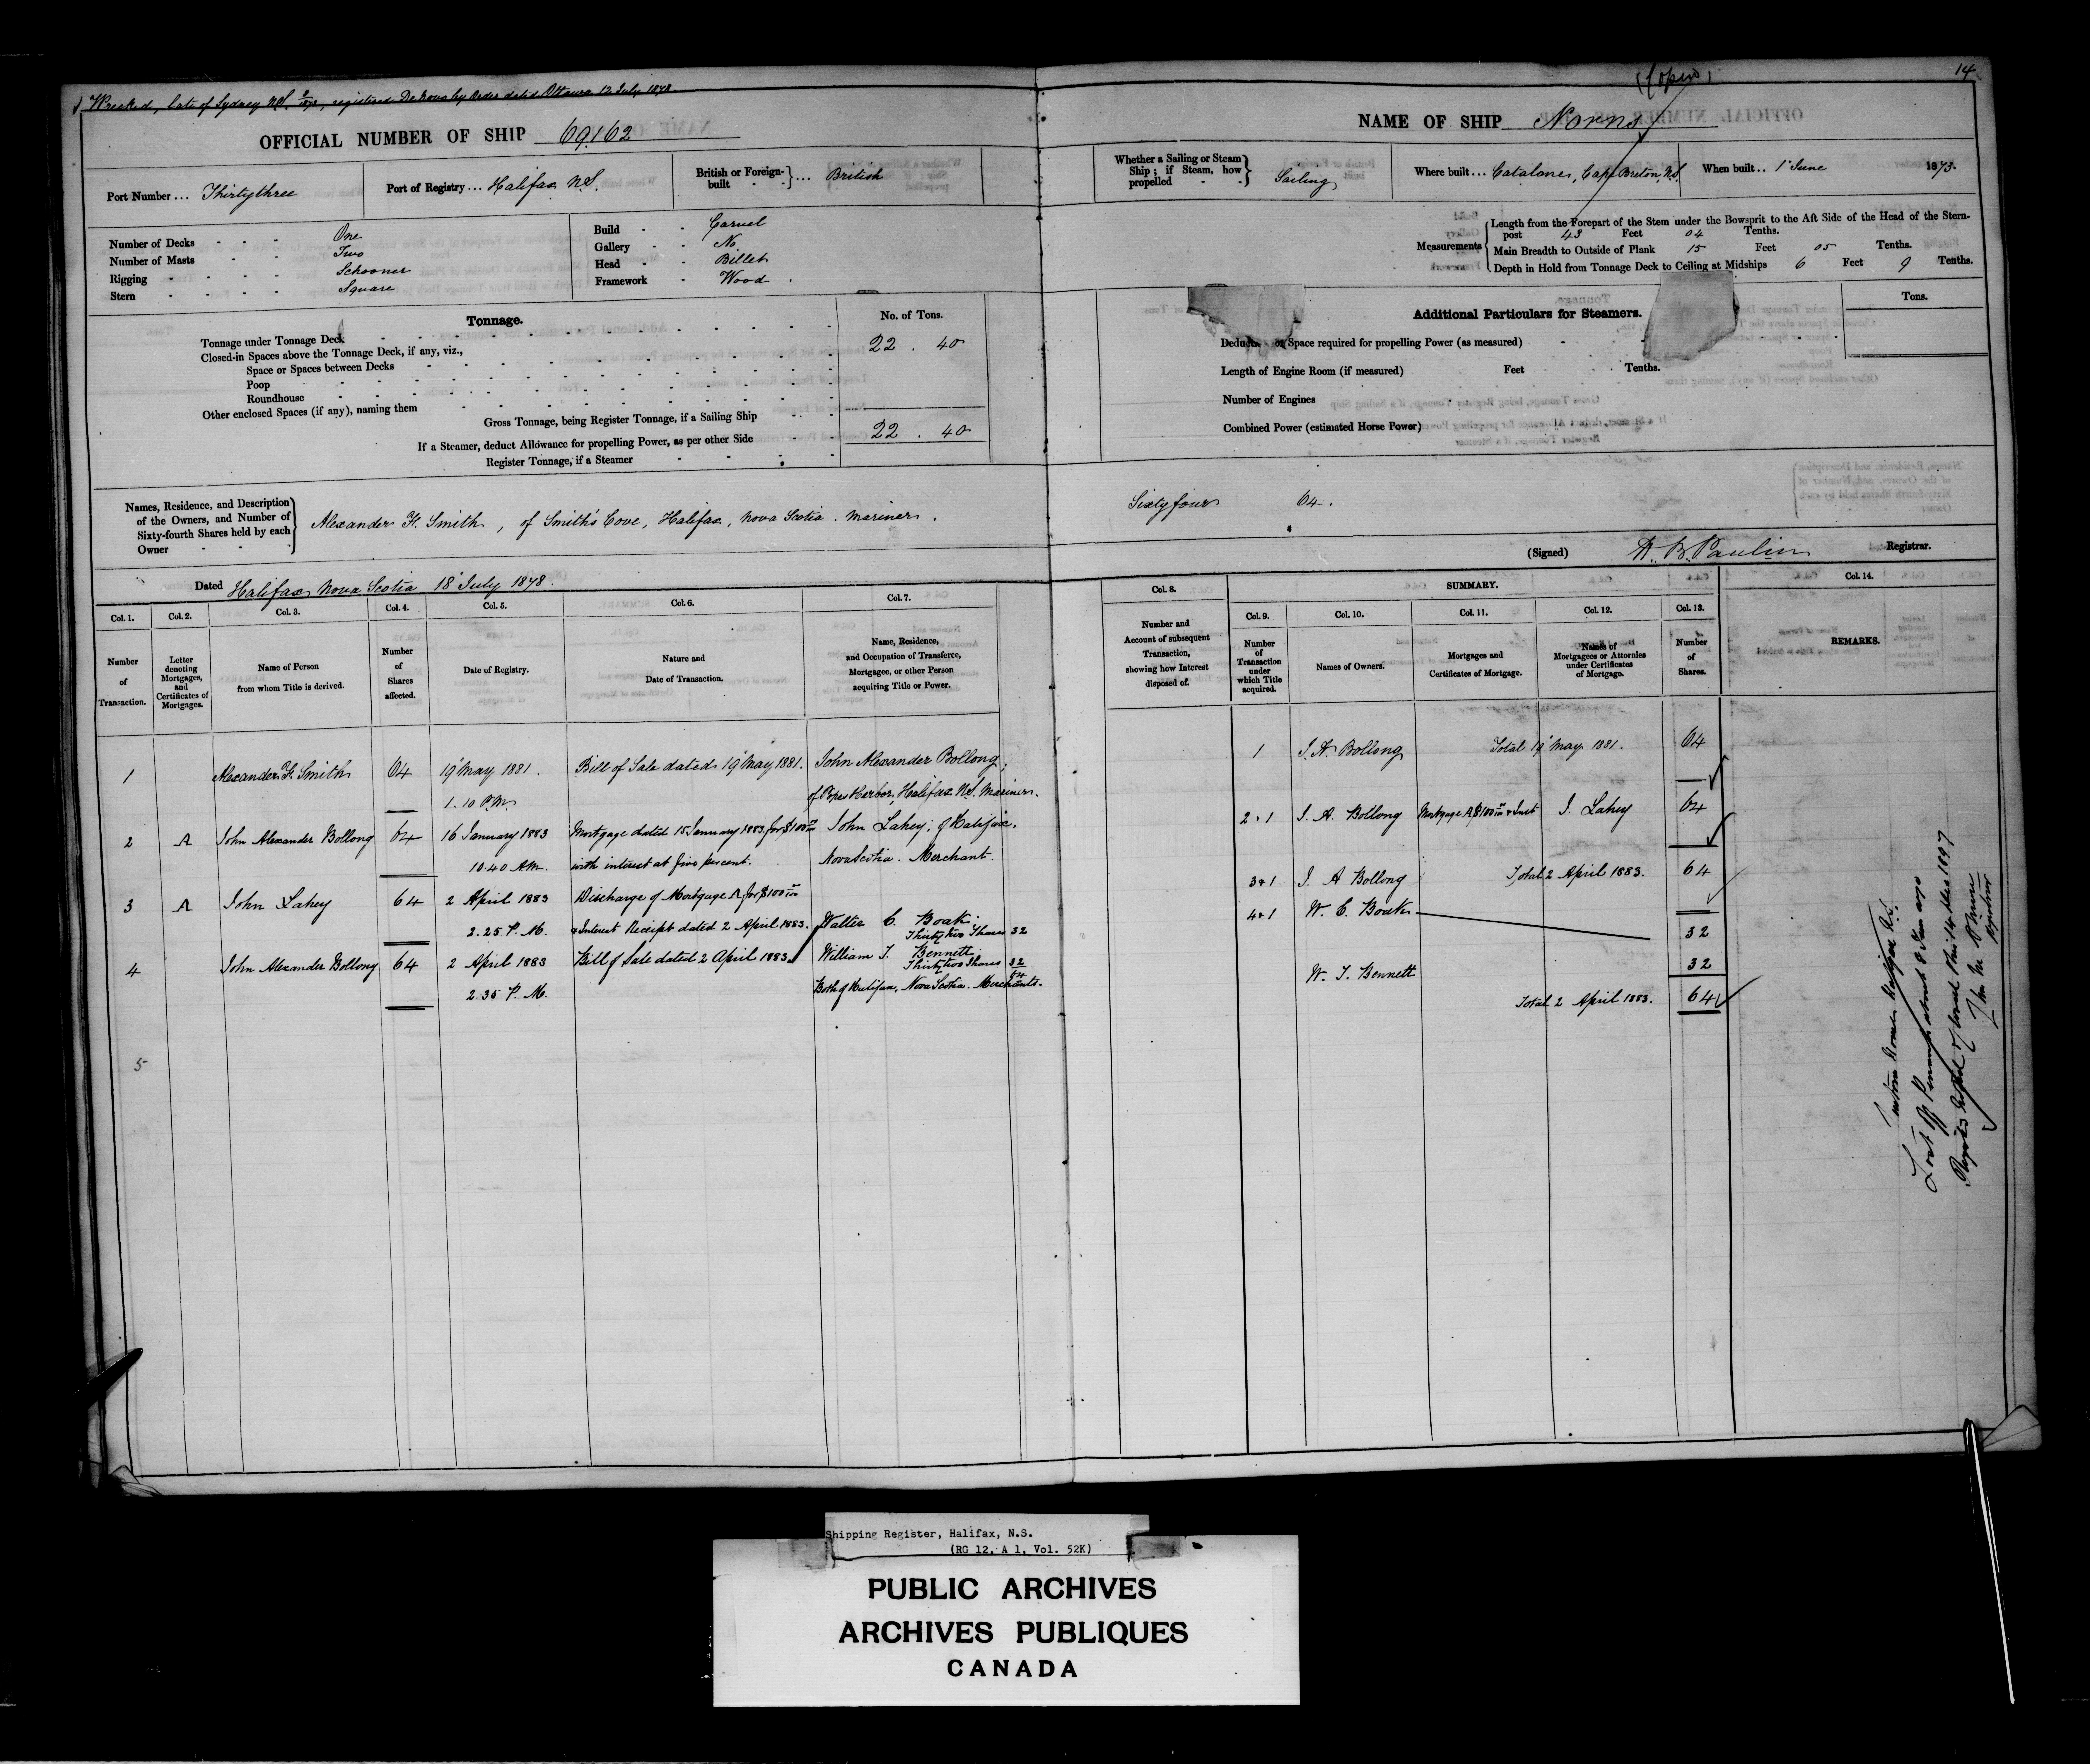 Wrecked, late of Sydney N.S. registered De Novo by Order dated Ottawa 12 July 1878
14
OFFICIAL NUMBER OF SHIP 69.162
NAME OF SHIP Norns
Port Number ... Thirtythree
Port of Registry ... Halifax N.S.
British or Foreign-built } ... British
Whether a Sailing or Steam Ship; if Steam, how propelled } Sailing
Where built ... Catalone, Cape Breton, N.S.
When built .. 1 June 1873.
Number of Decks One
Number of Masts Two
Rigging Schooner
Stern Square
Build Carvel
Gallery No
Head Billet
Framework Wood
Measurements
Length from the Forepart of the Stem under the Bowsprit to the Aft Side of the Head of the Stern-
post 43 Feet 04 Tenths.
Main Breadth to Outside of Plank 15 Feet 05 Tenths.
Depth in Hold from Tonnage Deck to Ceiling at Midships 6 Feet 9 Tenths.
Tonnage.
No. of Tons.
Tonnage under Tonnage Deck 22 . 40
Closed-in Spaces above the Tonnage Deck, if any, viz.,
Space or Spaces between Decks
Poop
Roundhouse
Other enclosed Spaces (if any), naming them
Gross Tonnage, being Register Tonnage, if a Sailing Ship 22 . 40
If a Steamer, deduct Allowance for propelling Power, as per other Side
Register Tonnage, if a Steamer
Additional Particulars for Steamers.
Tons.
or Space required for propelling Power (as measured)
Length of Engine Room (if measured) Feet Tenths.
Number of Engines
Combined Power (estimated Horse Power)
Names, Residence, and Description
of the Owners, and Number of
Sixty-fourth Shares held by each
Owner
Alexander F. Smith, of Smith's Cove, Halifax, Nova Scotia. Mariner. Sixty four 64.
(Signed) Paulin Registrar.
Dated Halifax Nova Scotia 18 July 1878.
Col. 1. Col. 2. Col. 3. Col. 4. Col. 5. Col. 6. Col. 7.
Number of Transaction.
Letter denoting Mortgages, and Certificates of Mortgages.
Name of Person from whom Title is derived.
Number of Shares affected.
Date of Registry.
Nature and Date of Transaction.
Name, Residence, and Occupation of Transferee, Mortgagee, or other Person acquiring Title or Power.
1 Alexander F. Smith 64 19 May 1881. Bill of Sale dated 19 May 1881. John Alexander Bollong,
1.10 P.M. of Popes Harbor, Halifax N.S. Mariner.
2 A John Alexander Bollong 64 16 January 1883 Mortgage dated 15 January 1883 for $100 John Lahey, of Halifax,
10.40 A.M. with interest at five percent. Nova Scotia. Merchant.
3 A John Lahey 64 2 April 1883 Discharge of Mortgage A for $100
2.25 P.M. & Interest Receipt dated 2 April 1883.
4 John Alexander Bollong 64 2 April 1883 Bill of Sale dated 2 April 1883.
2.35 P.M.
Walter C. Boak
Thirty two Shares 32
William T. Bennett
Thirty two Shares 32
64
Both of Halifax, Nova Scotia. Merchants.
5
Col. 8. Col. 9. Col. 10. Col. 11. Col. 12. Col. 13. Col. 14.
SUMMARY.
Number and Account of subsequent Transaction, showing how Interest disposed of.
Number of Transaction under which Title acquired.
Names of Owners.
Mortgages and Certificates of Mortgage.
Names of Mortgagees or Attornies under Certificates of Mortgage.
Number of Shares.
REMARKS.
1 J. A. Bollong Total 19 May 1881. 64
2 & 1 J. A. Bollong Mortgage A $100 & Inst J. Lahey 64
3 & 1 J. A Bollong Total 2 April 1883. 64
4 & 1 W. C. Boak 32
W. T. Bennett 32
Total 2 April 1883. 64
Lost off about
this 14 1897
Registrar
Shipping Register, Halifax, N.S.
(RG 12, A 1, Vol. 52K)
PUBLIC ARCHIVES
ARCHIVES PUBLIQUES
CANADA